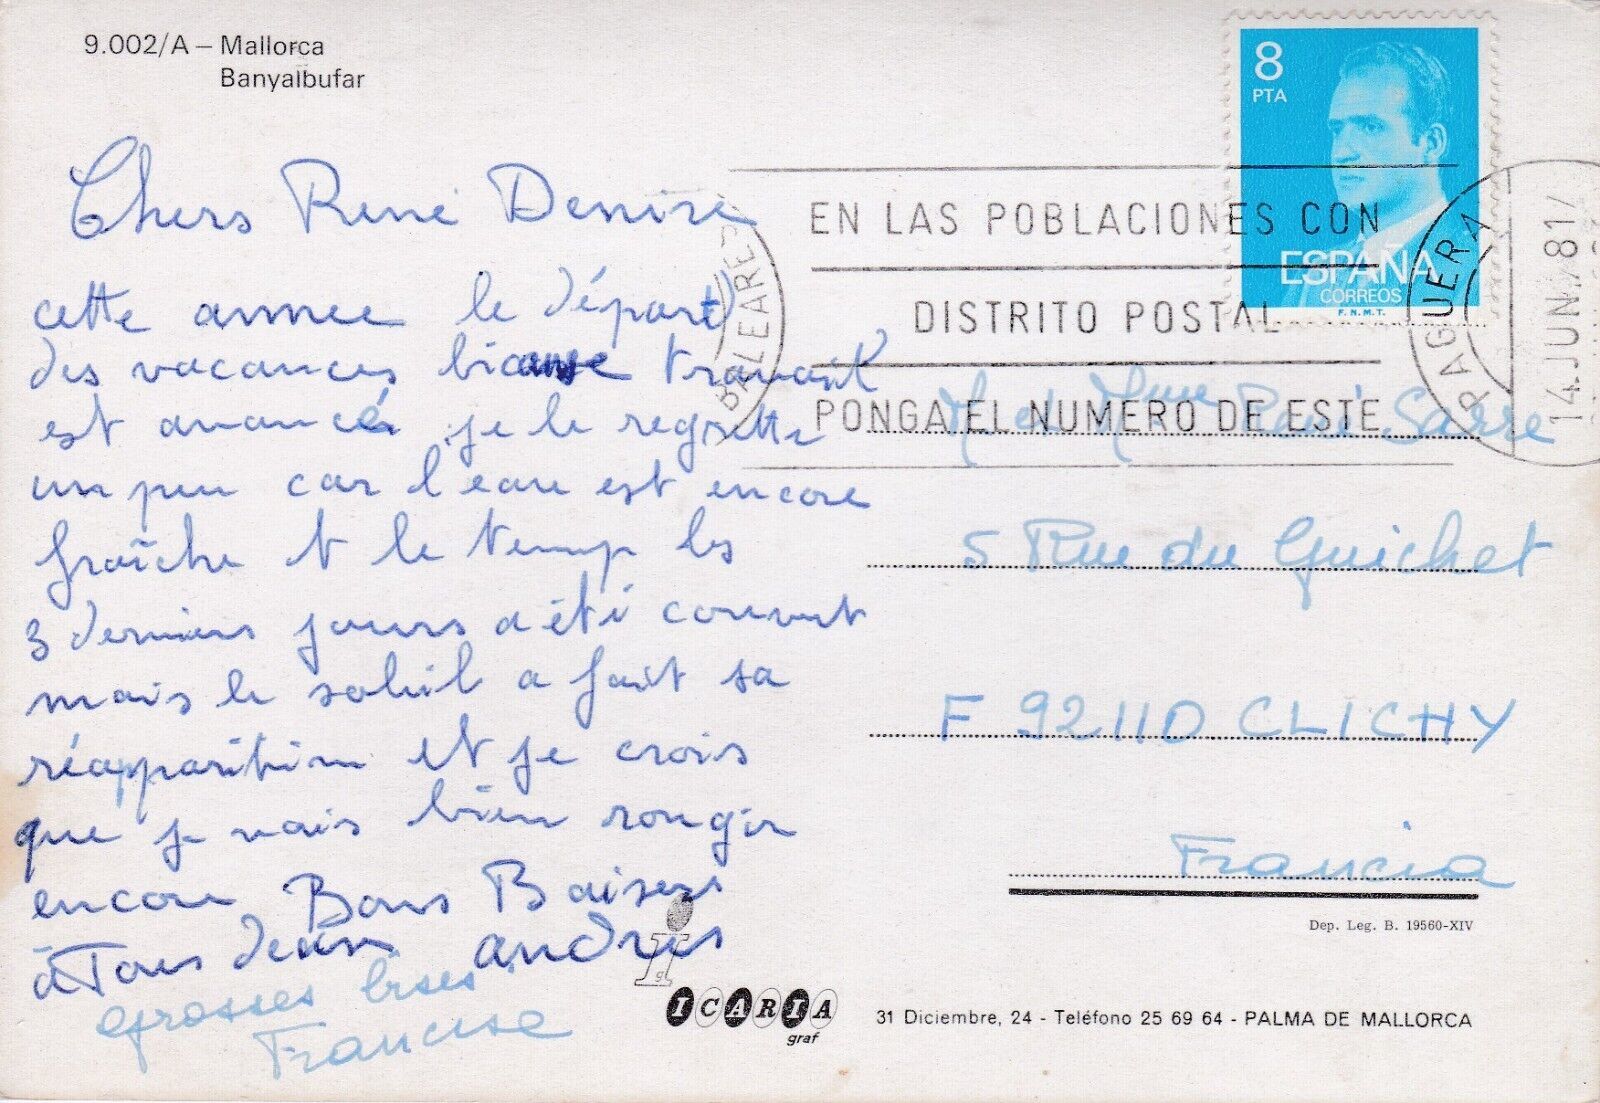 9.002/A – Mallorca
Banyalbufar
8
PTA
ESPAÑA
CORREOS
F.N.M.T.
BALEARES
EN LAS POBLACIONES CON
DISTRITO POSTAL
PONGA EL NUMERO DE ESTE
PAGUERA
14.JUN 81
Chers René Denise
cette année le départ
des vacances
est avancé je le regrette
un peu car l'eau est encore
fraîche et le temp les
3 derniers jours a été couvert
mais le soleil a fait sa
réapparition et je crois
que je vais bien rougir
encore Bons Baisers
à Tous deux
grosses bises
Francise
M et Mme René Sarre
5 Rue du Guichet
F 92110 CLICHY
Francia
Dep. Leg. B. 19560-XIV
ICARIA
graf
31 Diciembre, 24 - Teléfono 25 69 64 - PALMA DE MALLORCA